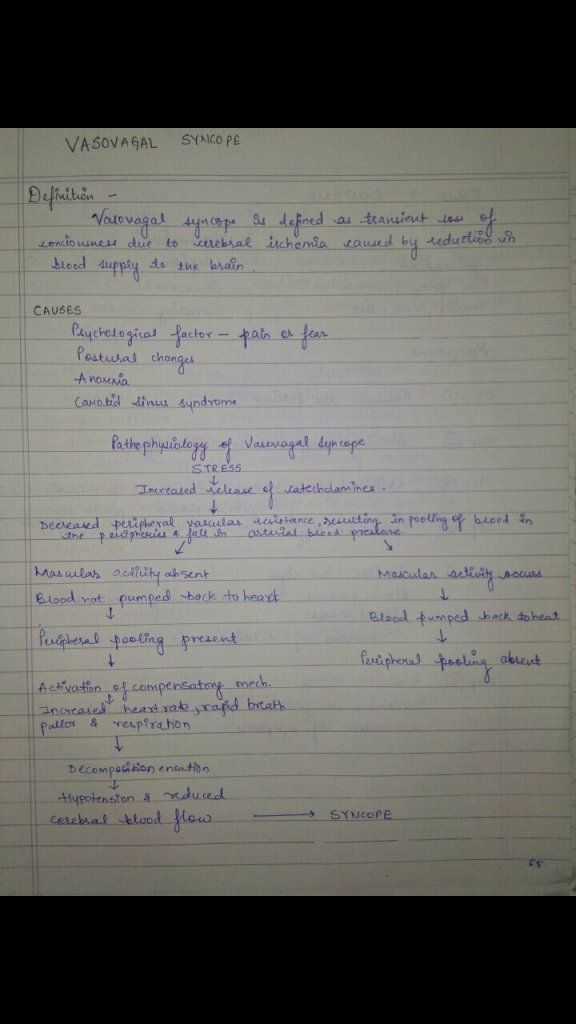 VASOVAGAL SYNCOPE
Definition -
Vasovagal syncope is defined as transient loss of
conciousness due to cerebral ischemia caused by reduction in
blood supply to the brain.
CAUSES
Psychological factor - pain or fear
Postural changes
Anorexia
Carotid sinus syndrome
Pathophysiology of Vasovagal Syncope
STRESS
↓
Increased release of catecholamines.
↓
Decreased peripheral vascular resistance, resulting in pooling of blood in
the peripheries & fall in arterial blood pressure.
↙ ↘
Mascular activity absent
Blood not pumped back to heart
↓
Peripheral pooling present
↓
Activation of compensatory mech.
↓
Increased heart rate, rapid breath
pallor & respiration
↓
Decomposition ensation
↓
Hypotension & reduced
cerebral blood flow → SYNCOPE
Mascular activity occurs
↓
Blood pumped back to heat
↓
Peripheral pooling absent
65